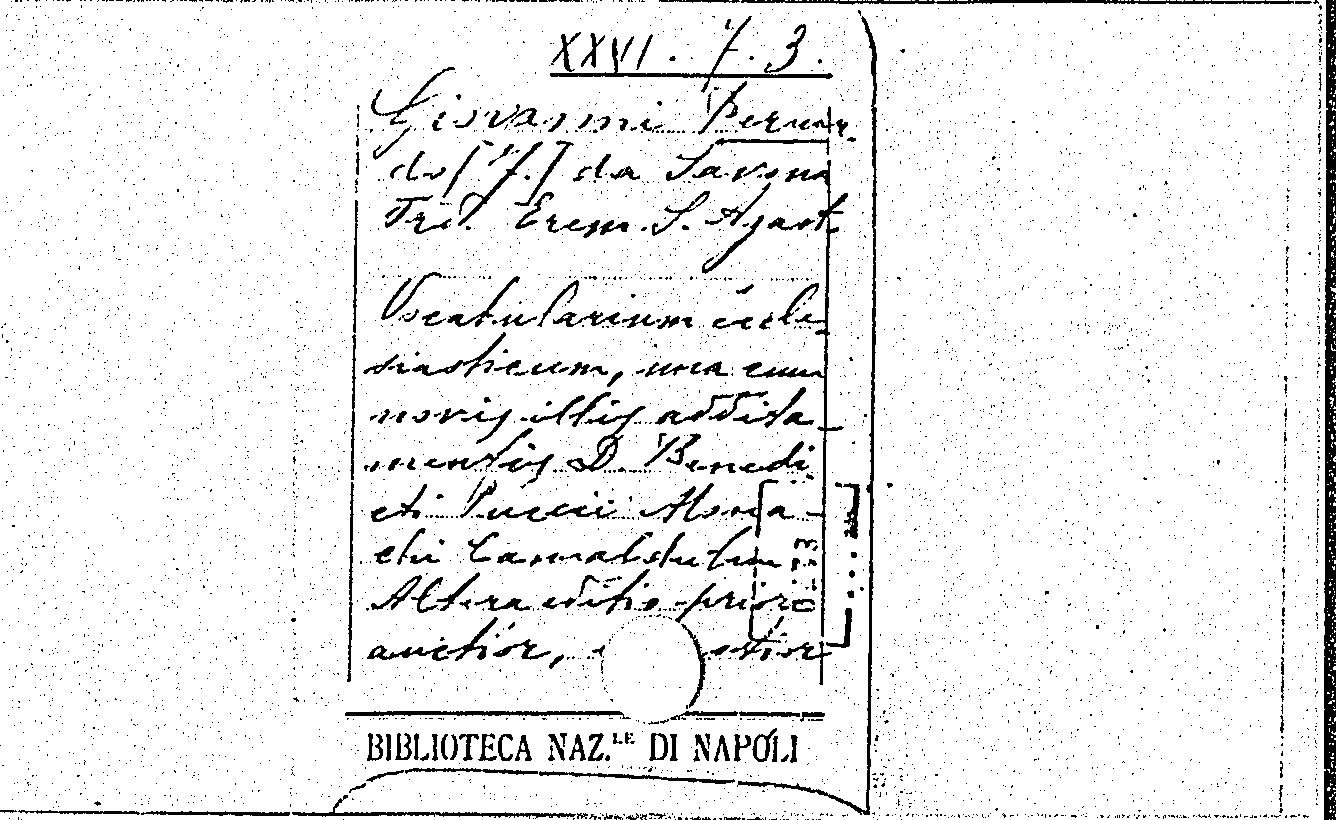 XXVI. 7. 3.
Giovanni Bernar.
do [F.] da Savona
Frat. Erem. S. Agost.
Vocabularium eccle-
siasticum, una cum
novis illis addita-
mentis D. Benedi
cti Puccii Mona-
chi Camaldulen
Altera editio priori
auctior,
BIBLIOTECA NAZ.LE DI NAPOLI